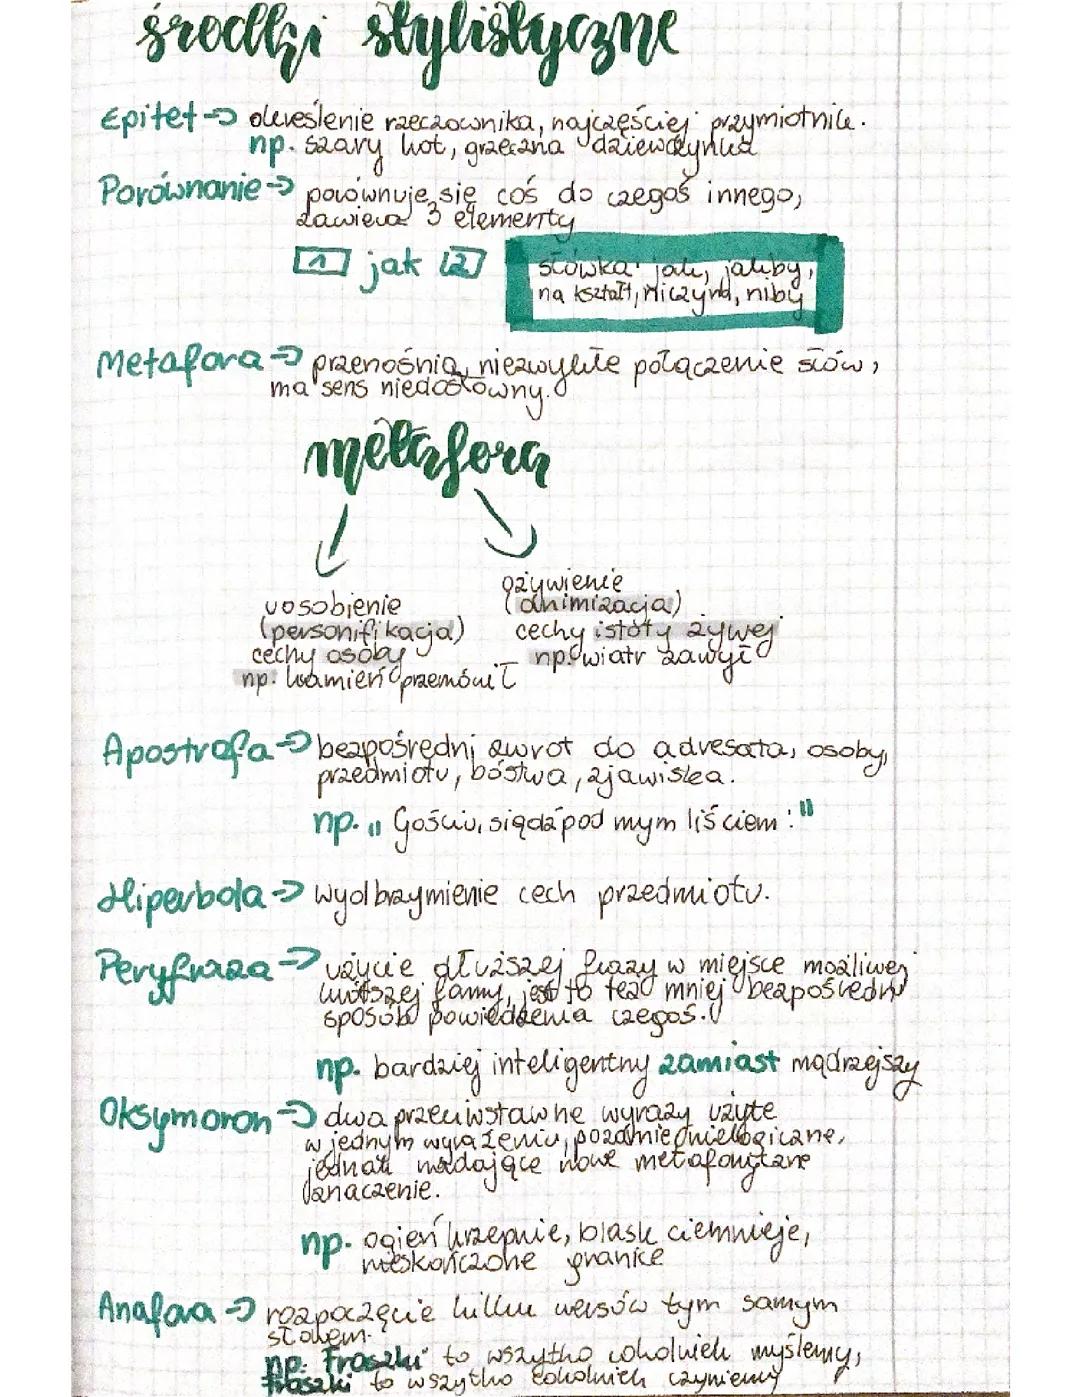 środki stylistyczne
Epitet → określenie rzeczownika, najczęściej przymiotnik.
np. szary kot, grzeczna dziewczynka
Porównanie → porównuje się coś do czegoś innego,
zawiera 3 elementy
1 jak 2
słówka: jak, jakby,
na kształt, niczym, niby
Metafora → przenośnia, niezwykłe połączenie słów,
ma sens niedosłowny.
metafora
uosobienie
(personifikacja)
cechy osoby
np. kamień przemówił
ożywienie
(animizacja)
cechy istoty żywej
np. wiatr zawył
Apostrofa → bezpośredni zwrot do adresata, osoby,
przedmiotu, bóstwa, zjawiska.
np. „Gościu, siądź pod mym liściem:"
Hiperbola → wyolbrzymienie cech przedmiotu.
Peryfraza → użycie dłuższej frazy w miejsce możliwej
krótszej formy, jest to też mniej bezpośredni
sposób powiedzenia czegoś.
np. bardziej inteligentny zamiast mądrzejszy
Oksymoron → dwa przeciwstawne wyrazy użyte
w jednym wyrażeniu, pozornie nielogiczne,
jednak nadające nowe metaforyczne
znaczenie.
np. ogień krzepnie, blask ciemnieje,
nieskończone granice
Anafora → rozpoczęcie kilku wersów tym samym
słowem.
np. Fraszki to wszytko cokolwiek myślemy,
fraszki to wszytko cokolwiek czyniemy